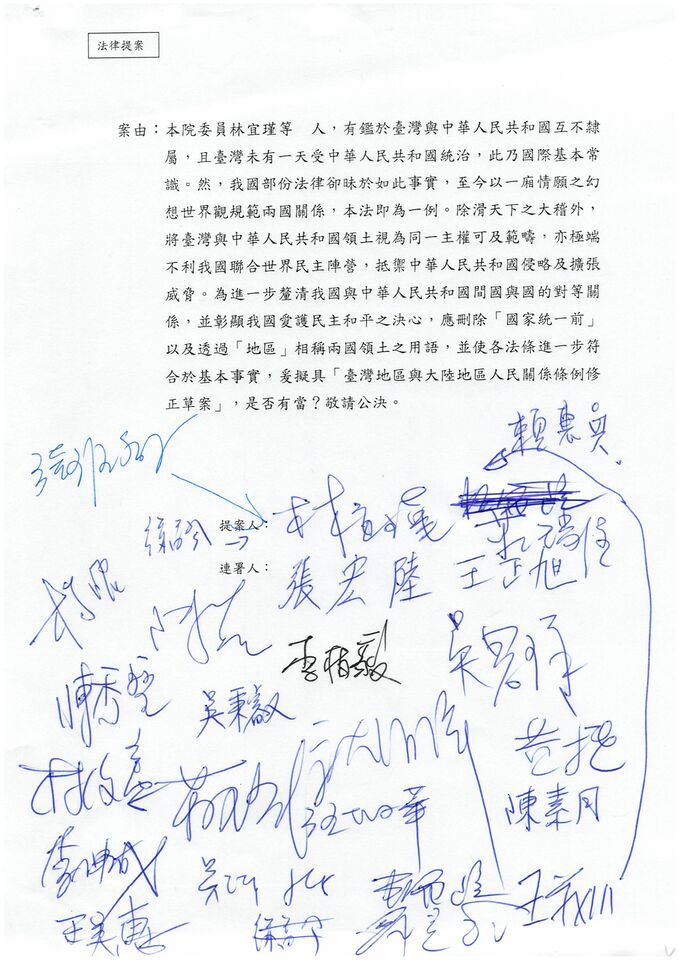 法律提案
案由：本院委員林宜瑾等　人，有鑑於臺灣與中華人民共和國互不隸
屬，且臺灣未有一天受中華人民共和國統治，此乃國際基本常
識。然，我國部份法律卻昧於如此事實，至今以一廂情願之幻
想世界觀規範兩國關係，本法即為一例。除滑天下之大稽外，
將臺灣與中華人民共和國領土視為同一主權可及範疇，亦極端
不利我國聯合世界民主陣營，抵禦中華人民共和國侵略及擴張
威脅。為進一步釐清我國與中華人民共和國間國與國的對等關
係，並彰顯我國愛護民主和平之決心，應刪除「國家統一前」
以及透過「地區」相稱兩國領土之用語，並使各法條進一步符
合於基本事實，爰擬具「臺灣地區與大陸地區人民關係條例修
正草案」，是否有當？敬請公決。
賴惠員
提案人：林宜瑾
連署人：張宏陸 王正旭
李柏毅
陳秀寳 吳秉叡
陳素月
李坤城
王美惠 王義川